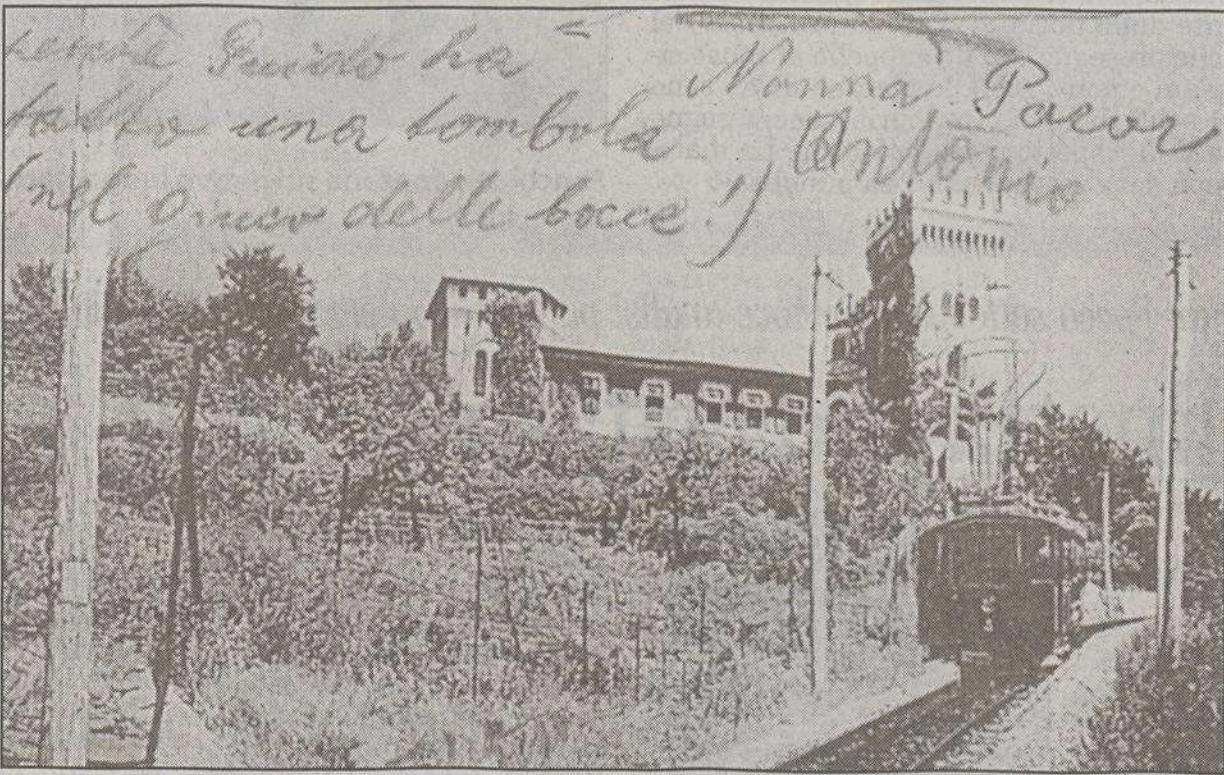 Guido ha
fatto una tombola
(nel Giuoco delle bocce!)
Nonna
Antonio